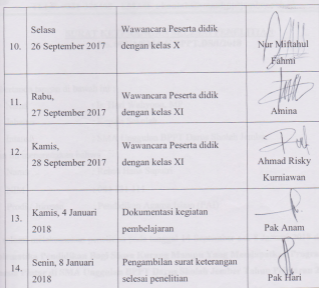 10.
Selasa
26 September 2017
Wawancara Peserta didik
dengan kelas X
Nur Miftahul
Fahmi
11.
Rabu,
27 September 2017
Wawancara Peserta didik
dengan kelas XI
Amina
12.
Kamis,
28 September 2017
Wawancara Peserta didik
dengan kelas XI
Ahmad Risky
Kurniawan
13.
Kamis, 4 Januari
2018
Dokumentasi kegiatan
pembelajaran
Pak Anam
14.
Senin, 8 Januari
2018
Pengambilan surat keterangan
selesai penelitian
Pak Hari